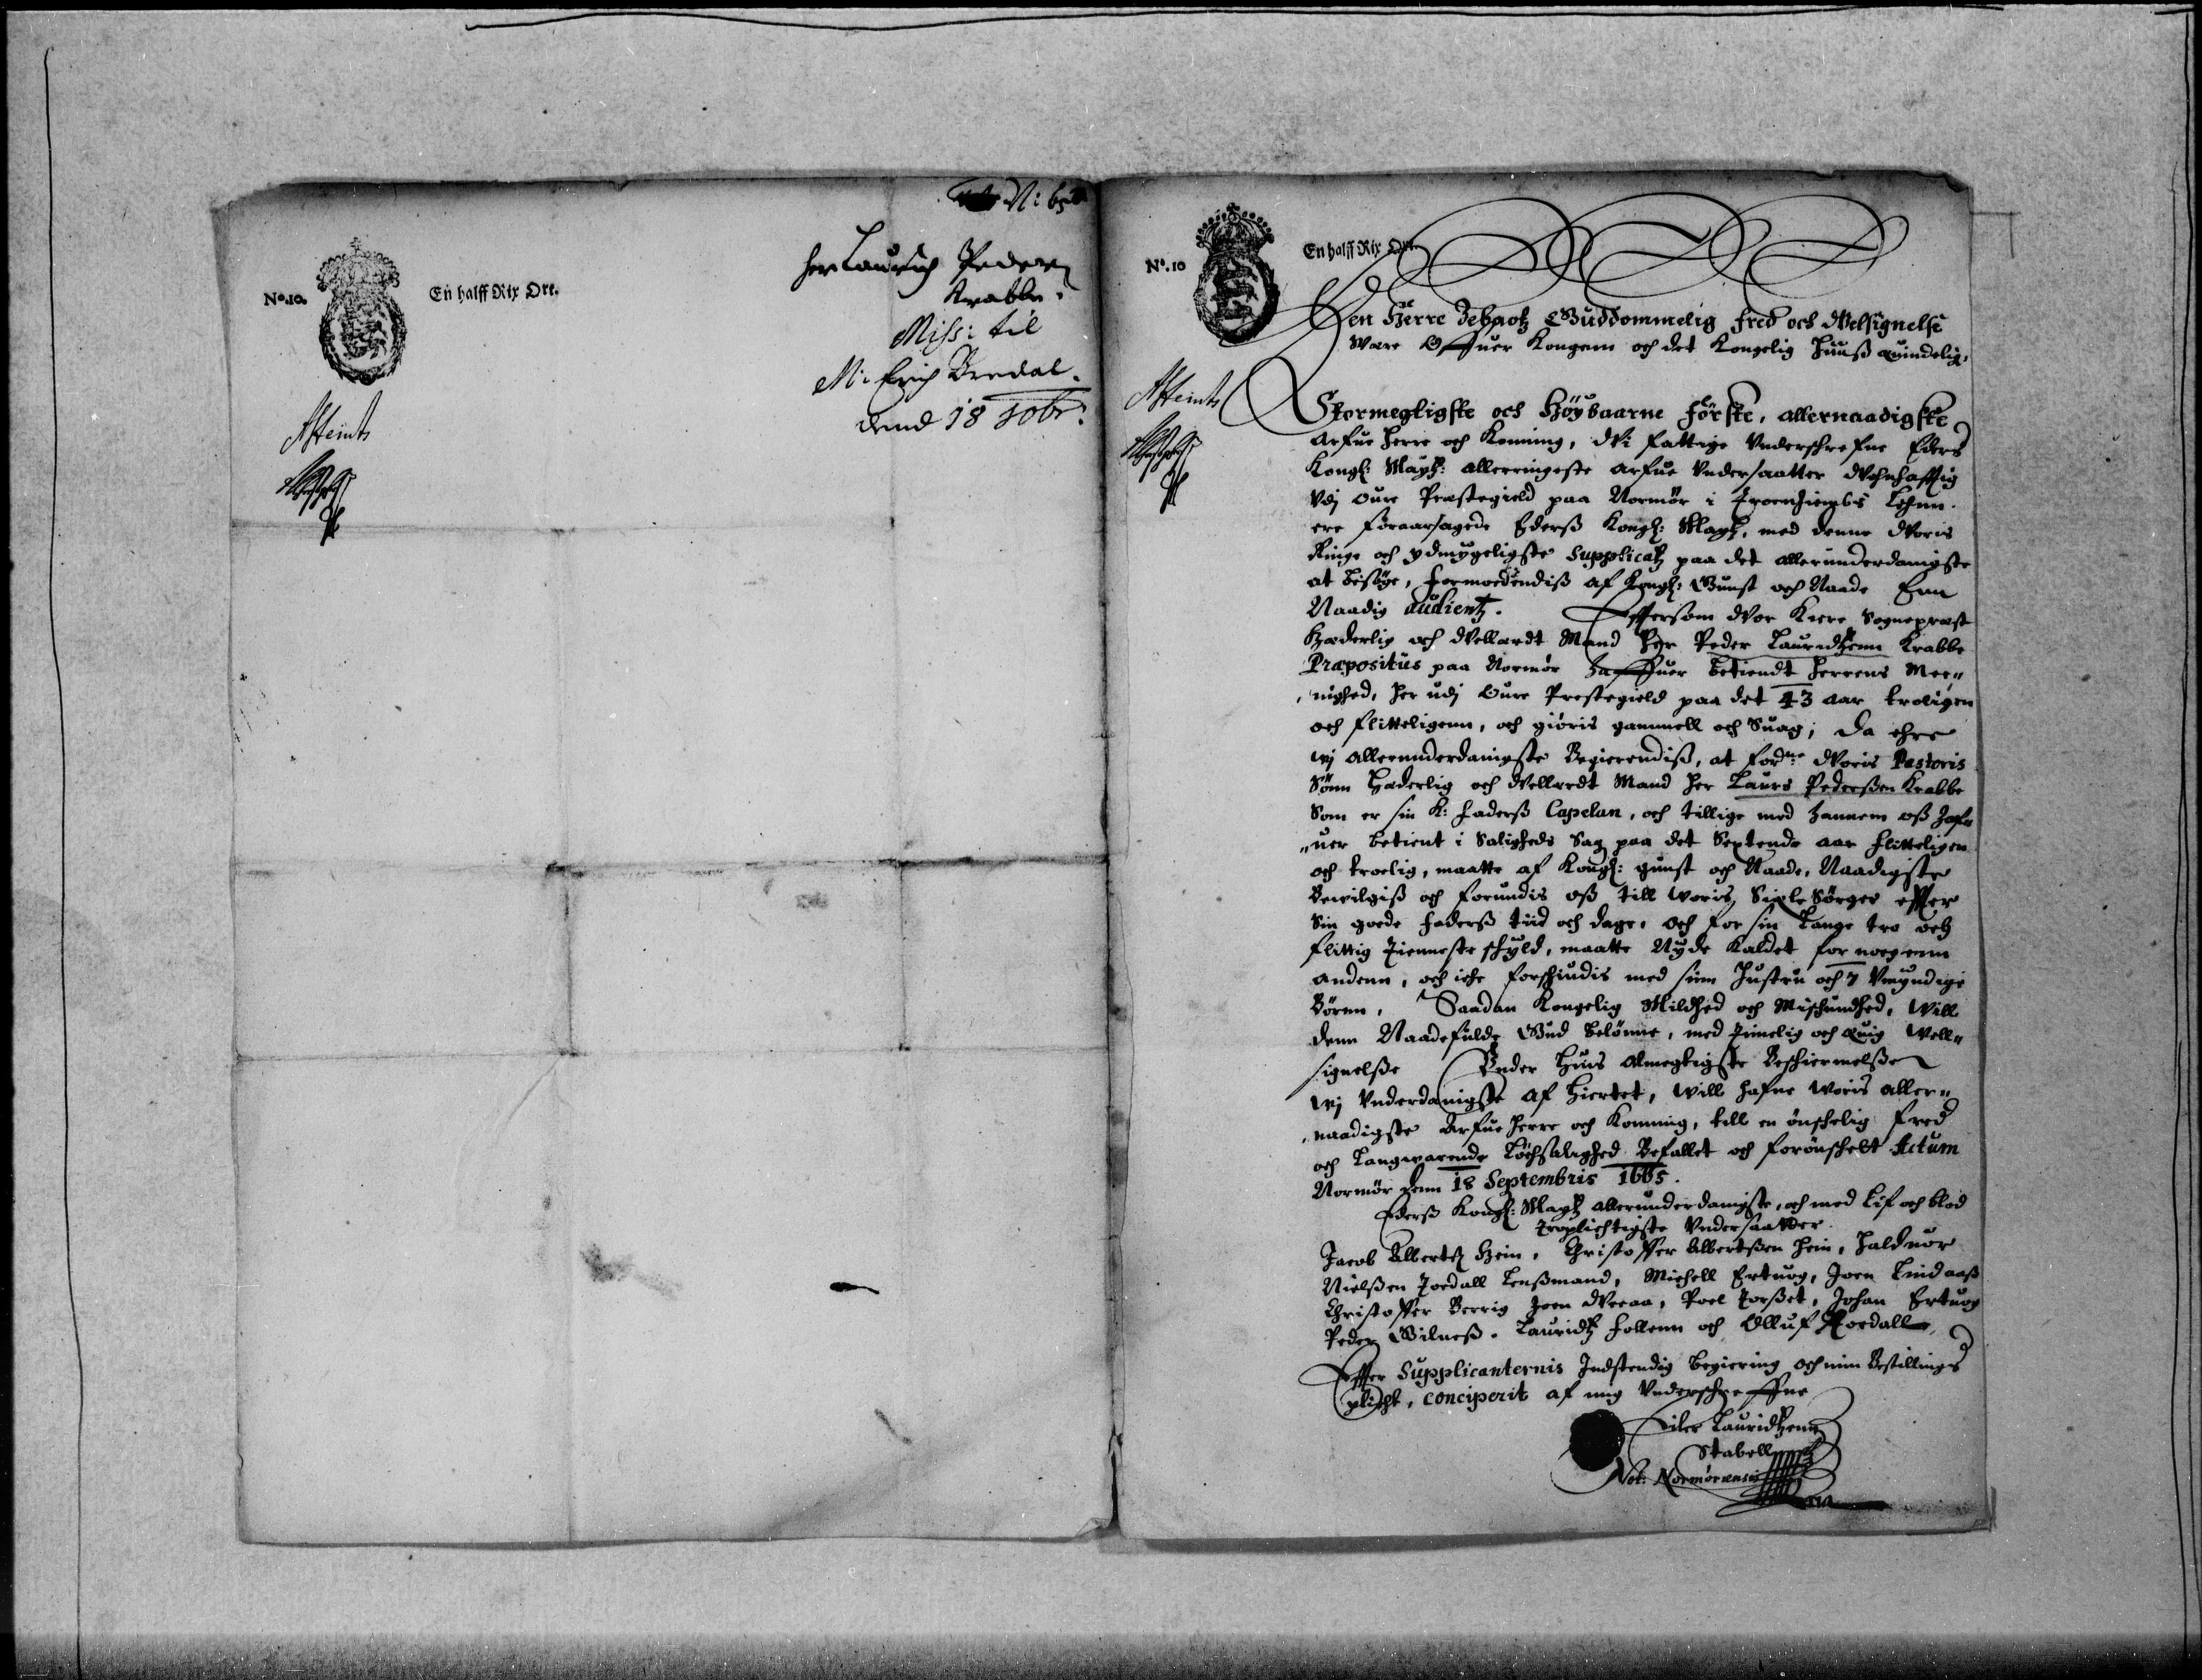 N: 658
No. 10.
En halff Rix Ort.
Her Lauridz Peders
Krabbe.
Miss: til
M: Erich Bredal.
dend 18 10br:
No. 10
En halff Rix Ort.
Den Herre Zebaotz Guddommelig Fred och Velsignelse
Were Offuer Kongenn och det Kongelig Huuss
Stormegtigste och Høybaarne Første, allernaadigste
Arfue Herre och Konning, Wi fattige Underschrefne Eders
Kongl: Mayts: allerringeste arfue Undersaatter Wohnhafftig
Udj Oure Prestegield paa Normør i Troendhiembs Lehnn.
ere foraarsagede Ederss Kongl: Mayt, med denne Woris
Ringe och ydmygeligste Supplicatz paa det allerunderdanigste
at besøge, Formoedendiss af Kongl: Gunst och Naade Enn
Naadig audientz. Effersom Wor Kiere Sogneprest
Hæderlig och Wellærdt Mand Her Peder Lauridtzenn Krabbe
Præpositus paa Normør Haffuer betiendt Herrens Mee„
„nighed, her udj Oure Prestegield paa det 43 aar troligen
och flitteligenn, och giøris gammell och Suag; Da ehre
wj allerunderdanigste Begierendiss, at fordne: Woris Pastoris
Sønn Hæderlig och Wellærdt Mand Her Laurs Pederssen Krabbe
Som er sin K: Faderss Capelan, och tillige med hannem oss haf„
„uer betient i Saligheds Sag paa det Sextende aar flitteligen
och troelig, maatte af Kongl: gunst och Naade, Naadigste
Bevilgiss och forundis oss till Woris Siele Sørger effter
Sin goede Faderss tiid och dage, och for sin Lange tro och
flittig Tienneste schyld, maatte Nyde Kaldet for nogenn
andenn, och iche forschiudis med sinn Hustru och 7 Umyndige
Børen, Saadan Kongelig Mildhed och Mischundhed, Will
denn Naadefulde Gud belønne, med Timelig och Æuig Well„
signelsse Under Huis Almegtigste Beschiermelsse
wj Underdanigste af Hiertet, Will hafue Woris aller„
„naadigste Arfue Herre och Konning, till en ønschelig Fred
och LangvarendeLøchsalighed Befallet och forønschebt Actum
Normør Denn 18 Septembris 1665.
Ederss Kongl: Mayts allerunderdanigste, och med Lif och blod
Troplichtigste Undersaatter.
Jacob Albertss Hein, Christoffer Albertssen Hein, Haldvor
Nielssen Joedall Lenssmand, Michell Ertuog, Joen Lindaass
Christoffer Berrig Joen Weeaa, Poel Torsset, Johan Ertuog
Peder Gilness. Lauridtz Follenn och Olluf Joedall
Effter Supplicanternis Indstendig begiering och min Bestillings
plicht, Conciperit af mig Underschreffne
Eiler Lauridtzenn
Stabell
Not: Normøriensis